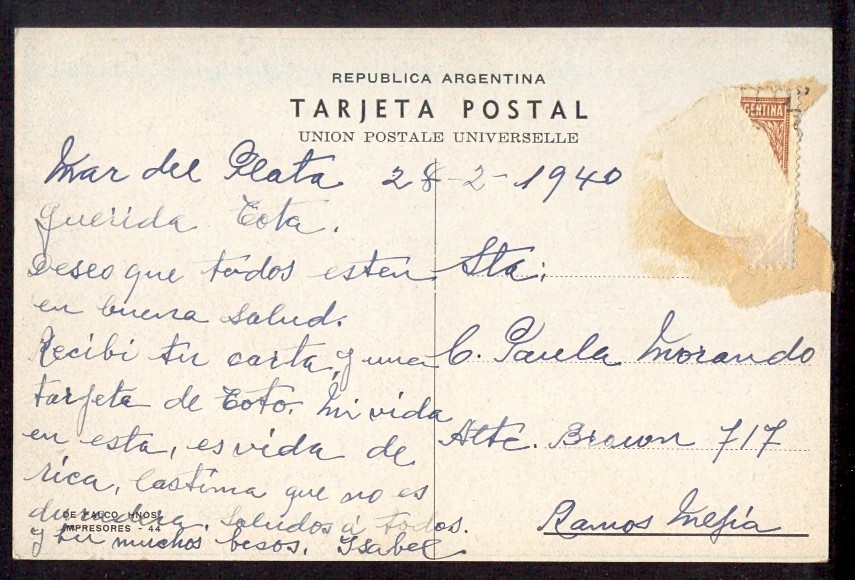 REPUBLICA ARGENTINA
TARJETA POSTAL
UNION POSTALE UNIVERSELLE
GENTINA
Mar del Plata 28-2-1940
Querida Tota.
Deseo que todos estén
en buena salud.
Recibi tu carta, y una
tarjeta de Toto. Mi vida
en esta, es vida de
rica, lastima que no es
duradera. Saludos á todos.
y tu muchos besos. Isabel
Sta:
C. Paula Morando
Alte. Brown 717
Ramos Mejia
DE FALCO HNOS.
IMPRESORES - 44